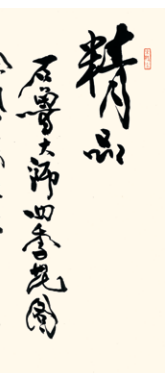 精品
石鲁大师四季花图